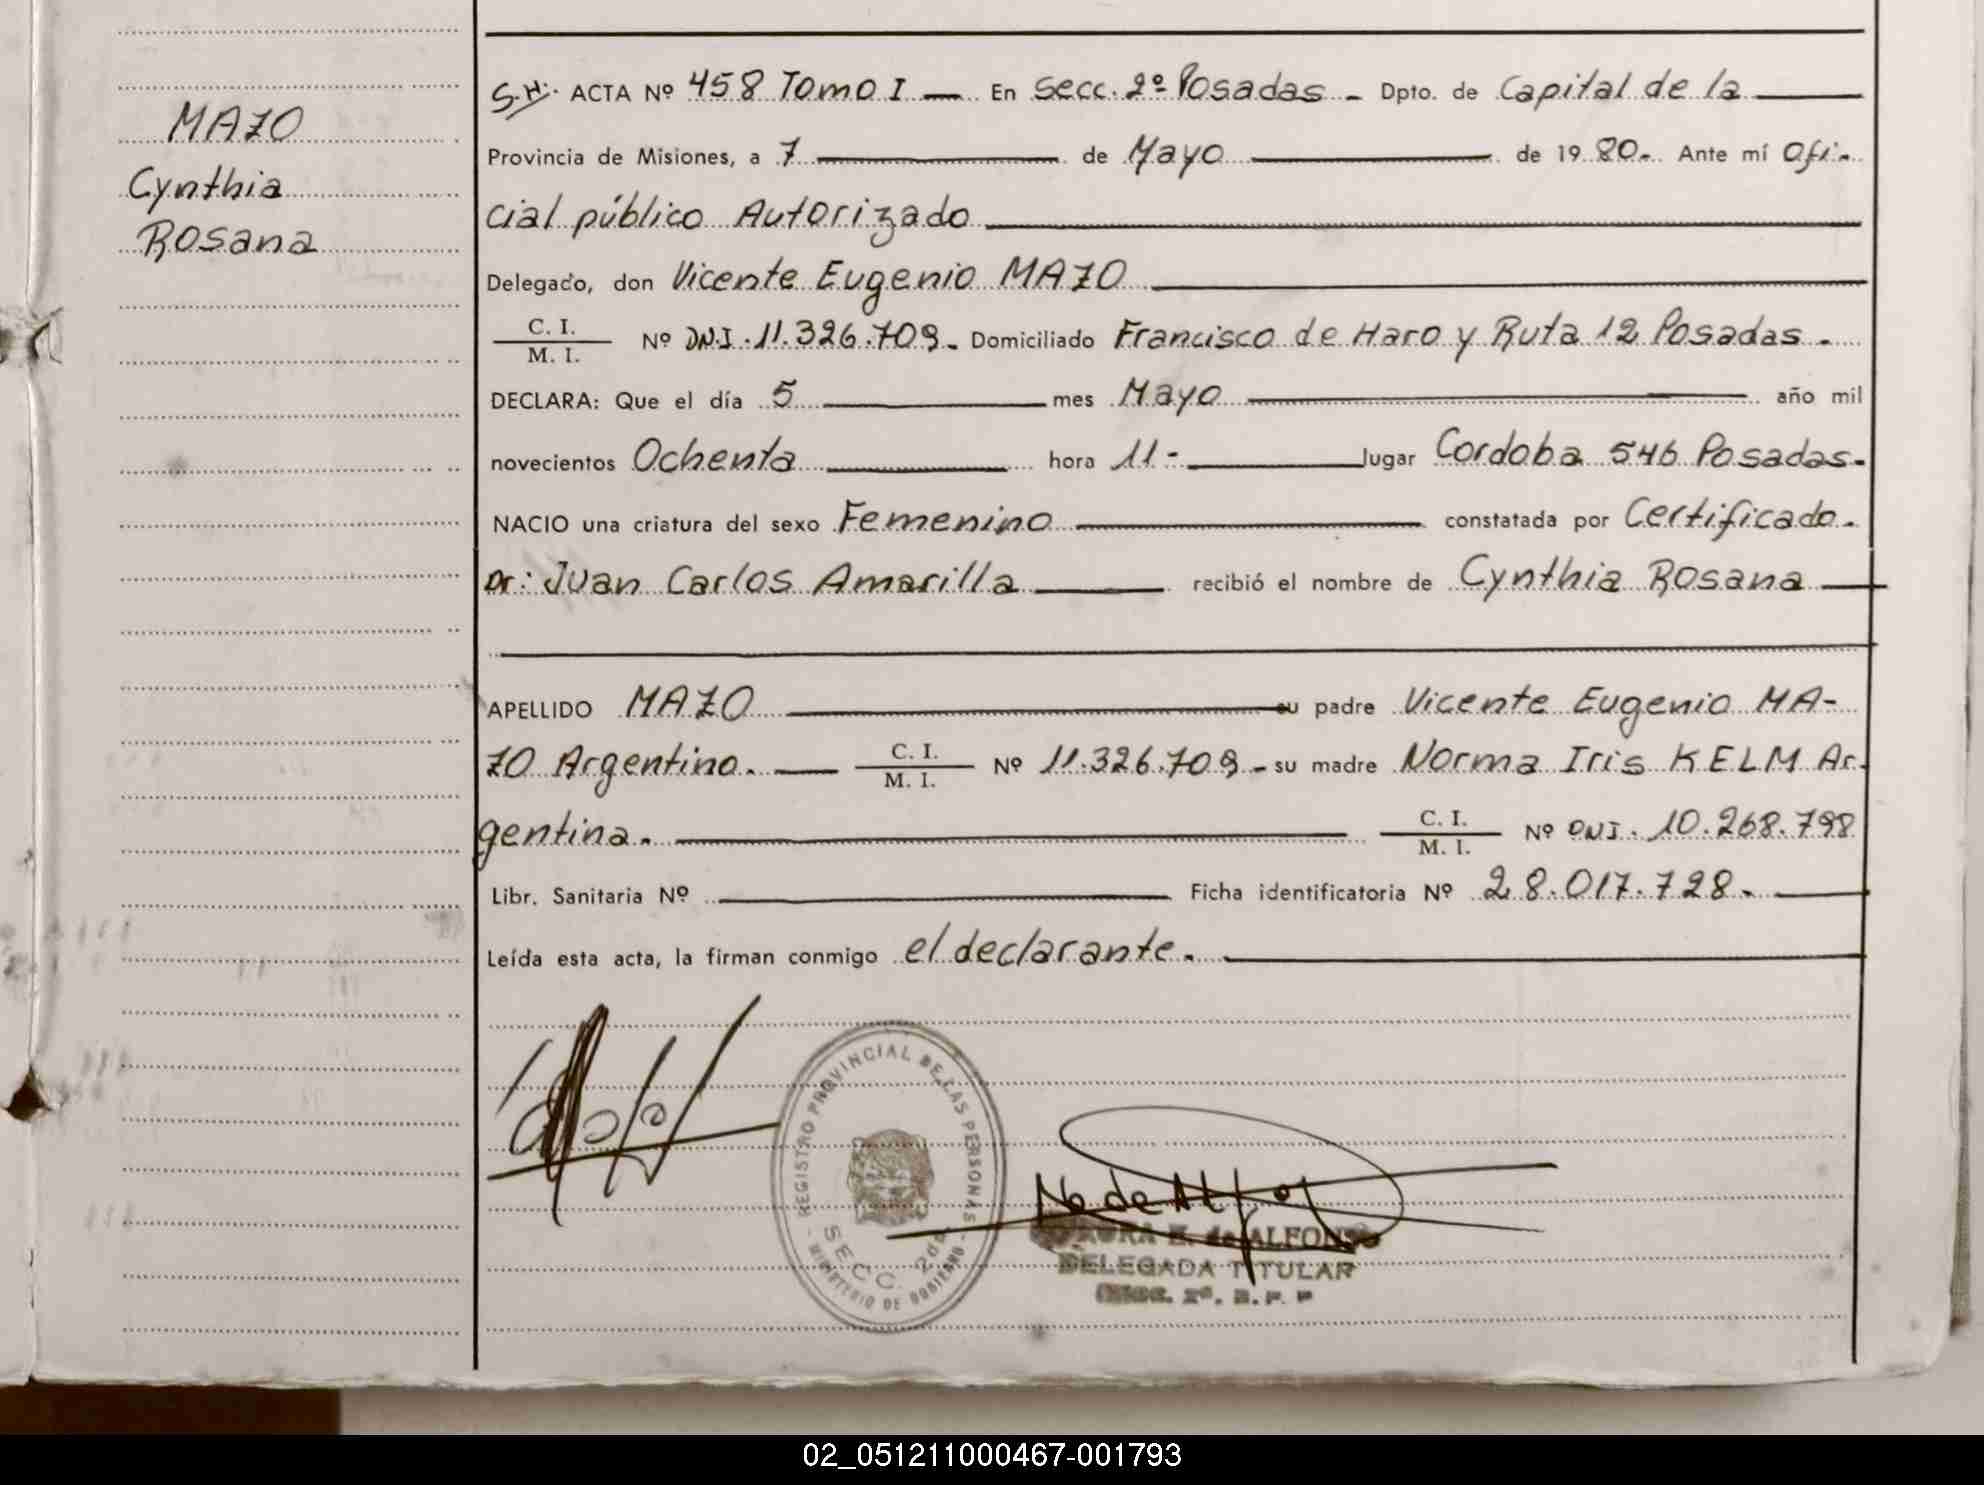 MAZO
Cynthia
Rosana
S.H: ACTA Nº 458 Tomo I — En Secc. 2º Posadas - Dpto. de Capital de la
Provincia de Misiones, a 7 de Mayo de 1980. Ante mí Ofi-
cial público Autorizado
Delegado, don Vicente Eugenio MAZO
C. I.
M. I. Nº DNI. 11.326.709. Domiciliado Francisco de Haro y Ruta 12 Posadas.
DECLARA: Que el día 5 mes Mayo año mil
novecientos Ochenta hora 11- lugar Cordoba 546 Posadas.
NACIO una criatura del sexo Femenino constatada por Certificado.
Dr: Juan Carlos Amarilla recibió el nombre de Cynthia Rosana
APELLIDO MAZO su padre Vicente Eugenio MA-
ZO Argentino. C. I.
M. I. Nº 11.326.709 - su madre Norma Iris KELM Ar-
gentina. C. I.
M. I. Nº DNI. 10.268.798
Libr. Sanitaria Nº Ficha identificatoria Nº 28.017.728.
Leída esta acta, la firman conmigo el declarante.
REGISTRO PROVINCIAL DE LAS PERSONAS
SECC. 2da
MINISTERIO DE GOBIERNO
de ALFONSO
DELEGADA TITULAR
02_051211000467-001793